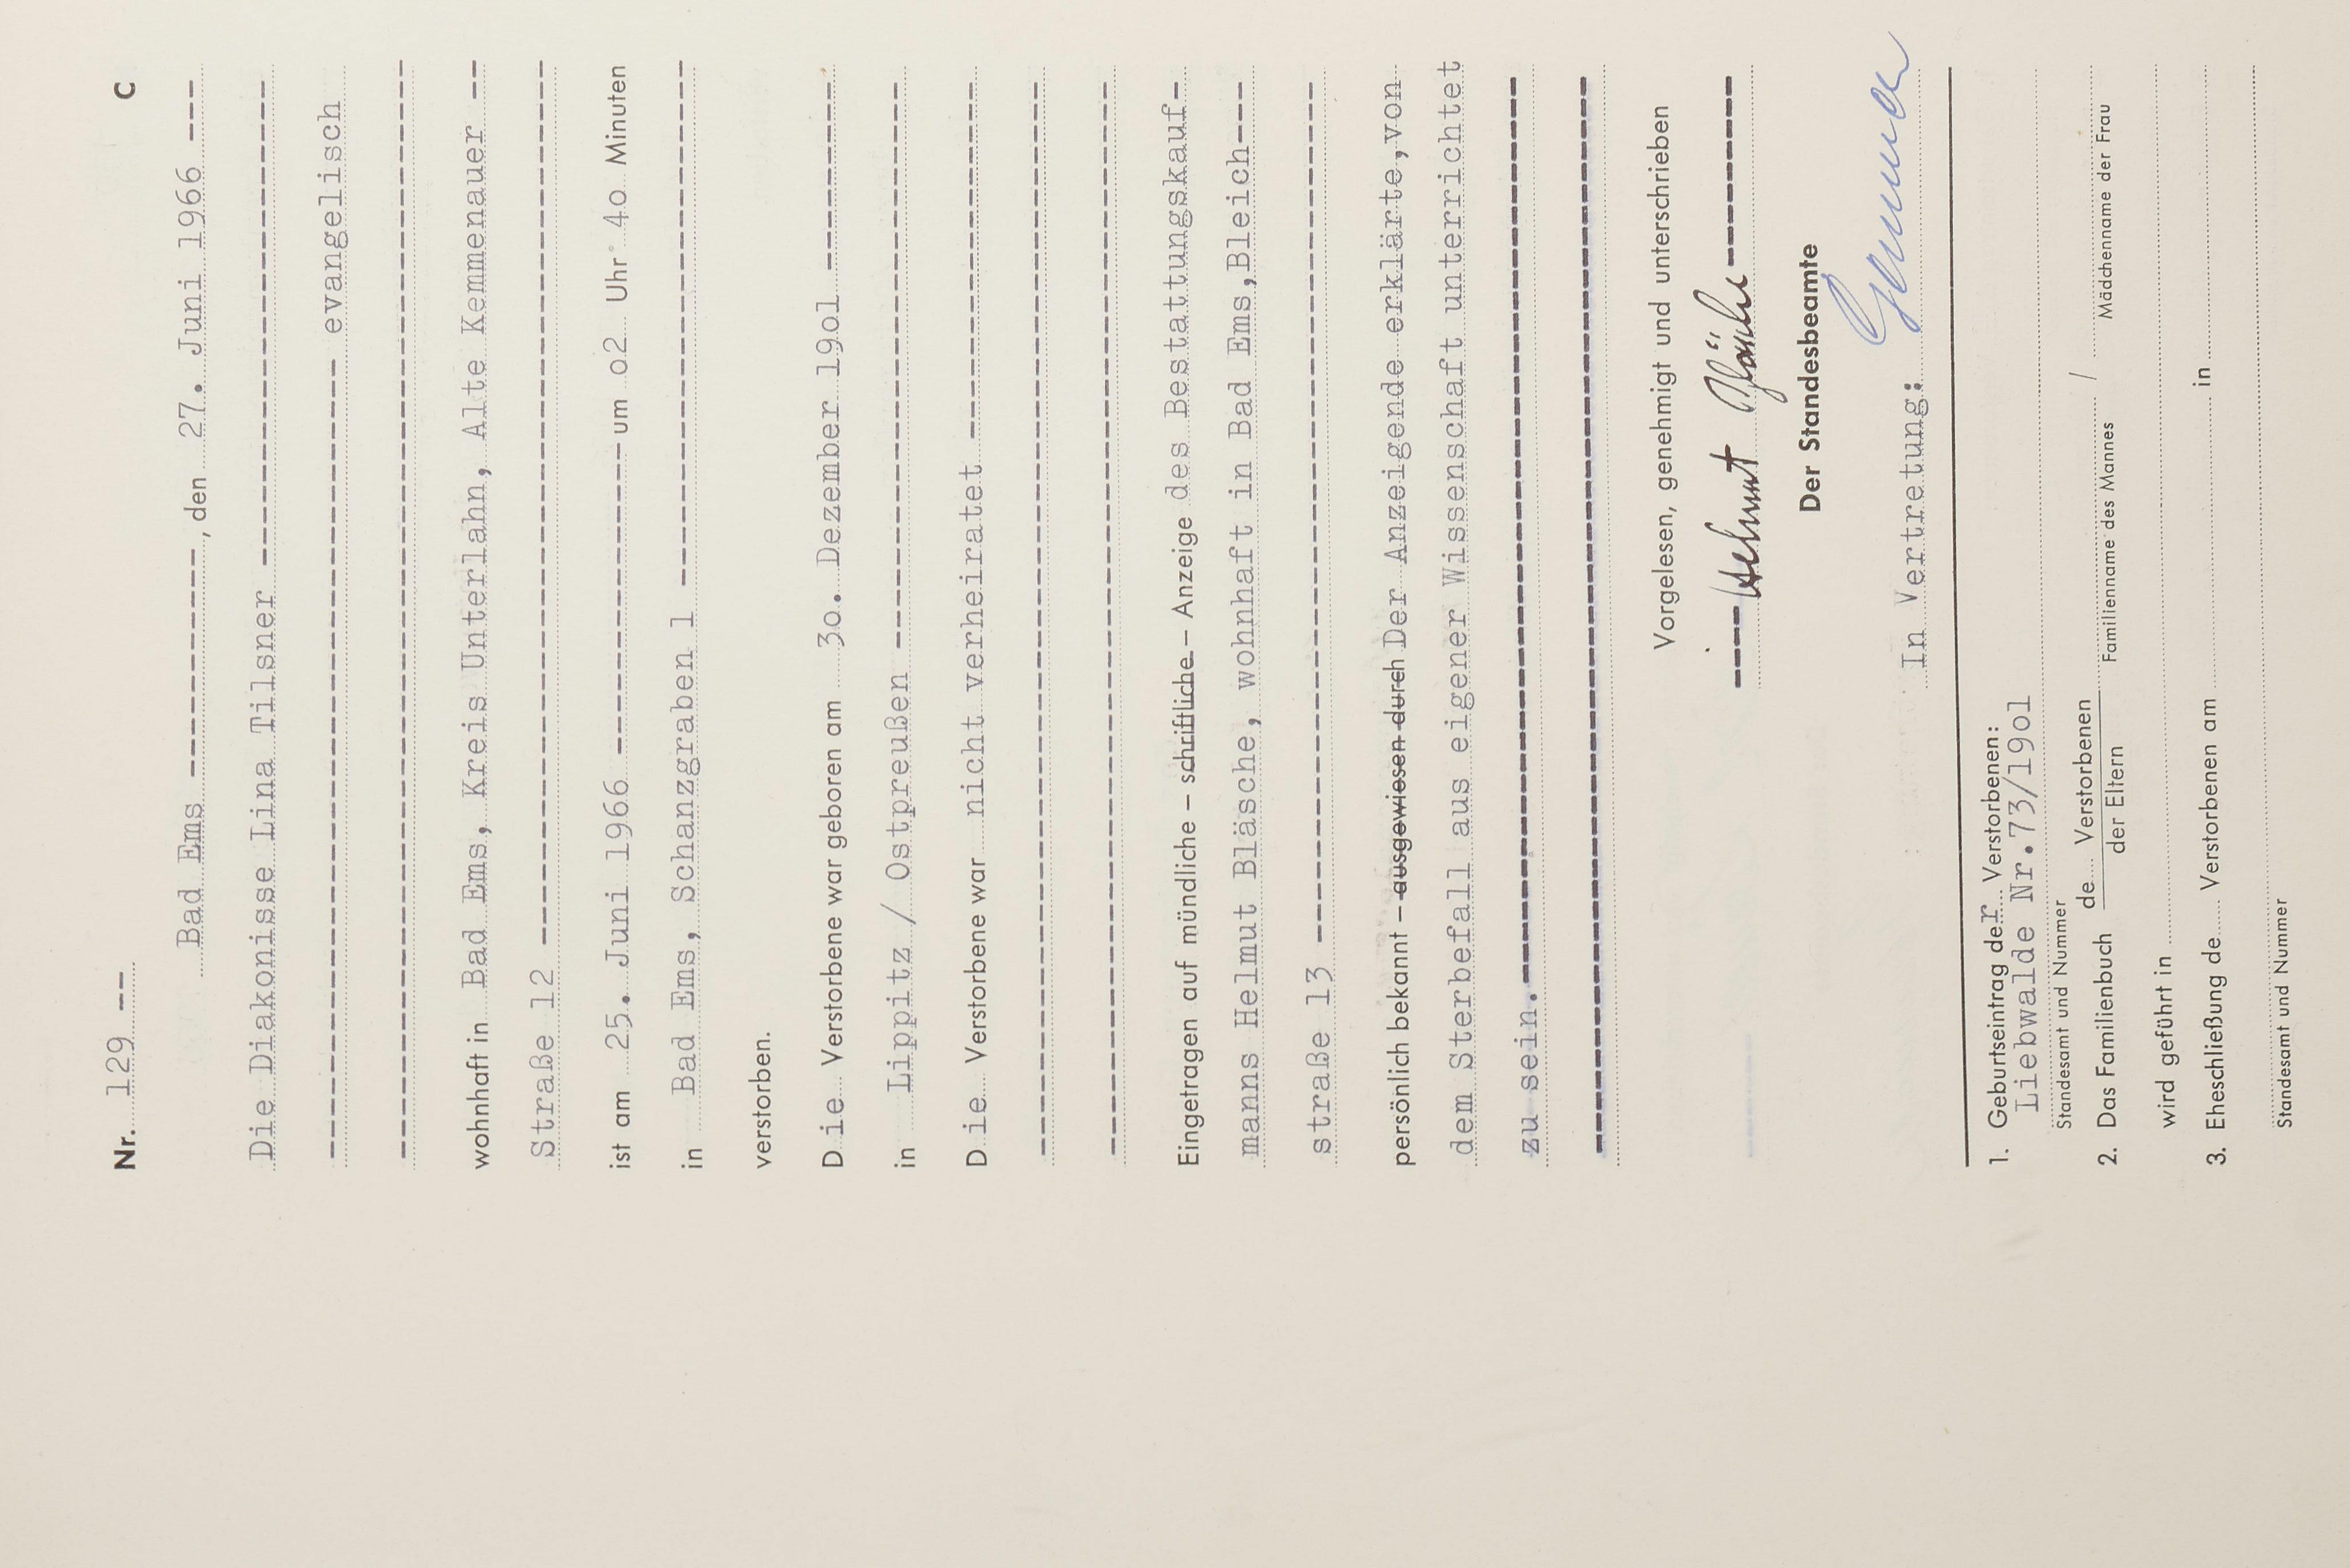 Nr. 129 -- C
Bad Ems ----------, den 27. Juni 1966 ---
Die Diakonisse Lina Tilsner --------------------
------------------ evangelisch
----------------------------------------
wohnhaft in Bad Ems, Kreis Unterlahn, Alte Kemmenauer --
Straße 12 ----------------------------------
ist am 25. Juni 1966 ------------- um o2 Uhr 4o Minuten
in Bad Ems, Schanzgraben 1 ----------------------
verstorben.
Die Verstorbene war geboren am 3o. Dezember 19o1 --------
in Lippitz / Ostpreußen ------------------------
Die Verstorbene war nicht verheiratet ---------------
----------------------------------------
----------------------------------------
Eingetragen auf mündliche – schriftliche – Anzeige des Bestattungskauf-
manns Helmut Bläsche, wohnhaft in Bad Ems,Bleich---
straße 13 -----------------------------------
persönlich bekannt – ausgewiesen durch Der Anzeigende erklärte,von
dem Sterbefall aus eigener Wissenschaft unterrichtet
zu sein.------------------------------------
----------------------------------------
Vorgelesen, genehmigt und unterschrieben
---- Helmut Bläsche --------
Der Standesbeamte
In Vertretung:
1. Geburtseintrag der Verstorbenen:
Liebwalde Nr.73/19o1
Standesamt und Nummer
2. Das Familienbuch de Verstorbenen /
der Eltern Familienname des Mannes Mädchenname der Frau
wird geführt in
3. Eheschließung de Verstorbenen am in
Standesamt und Nummer